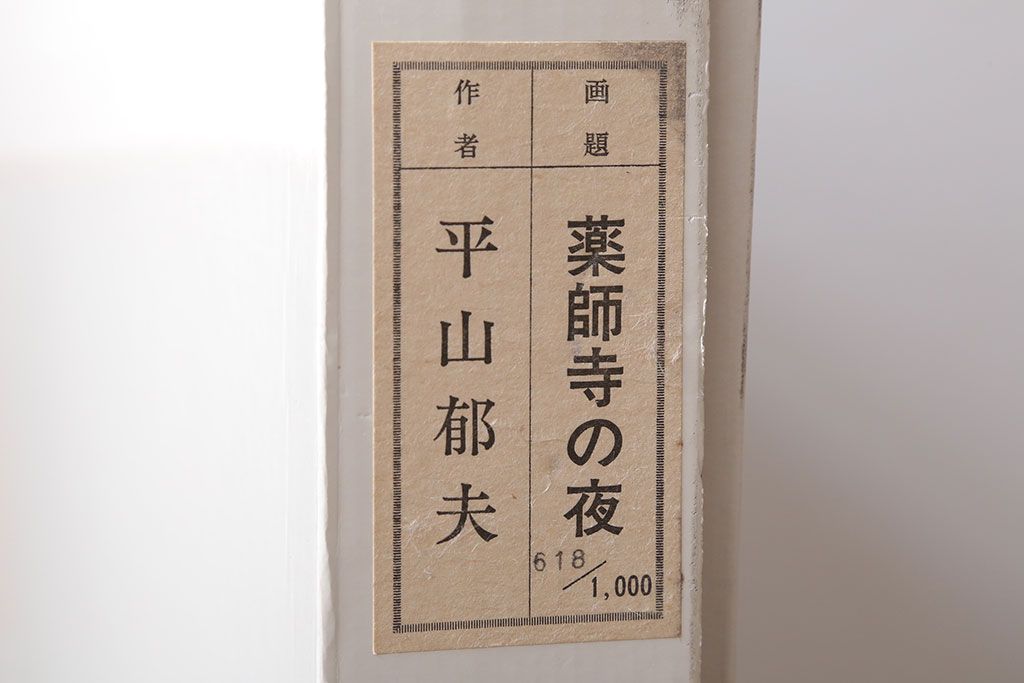 画題
薬師寺の夜
618/1,000
作者
平山郁夫